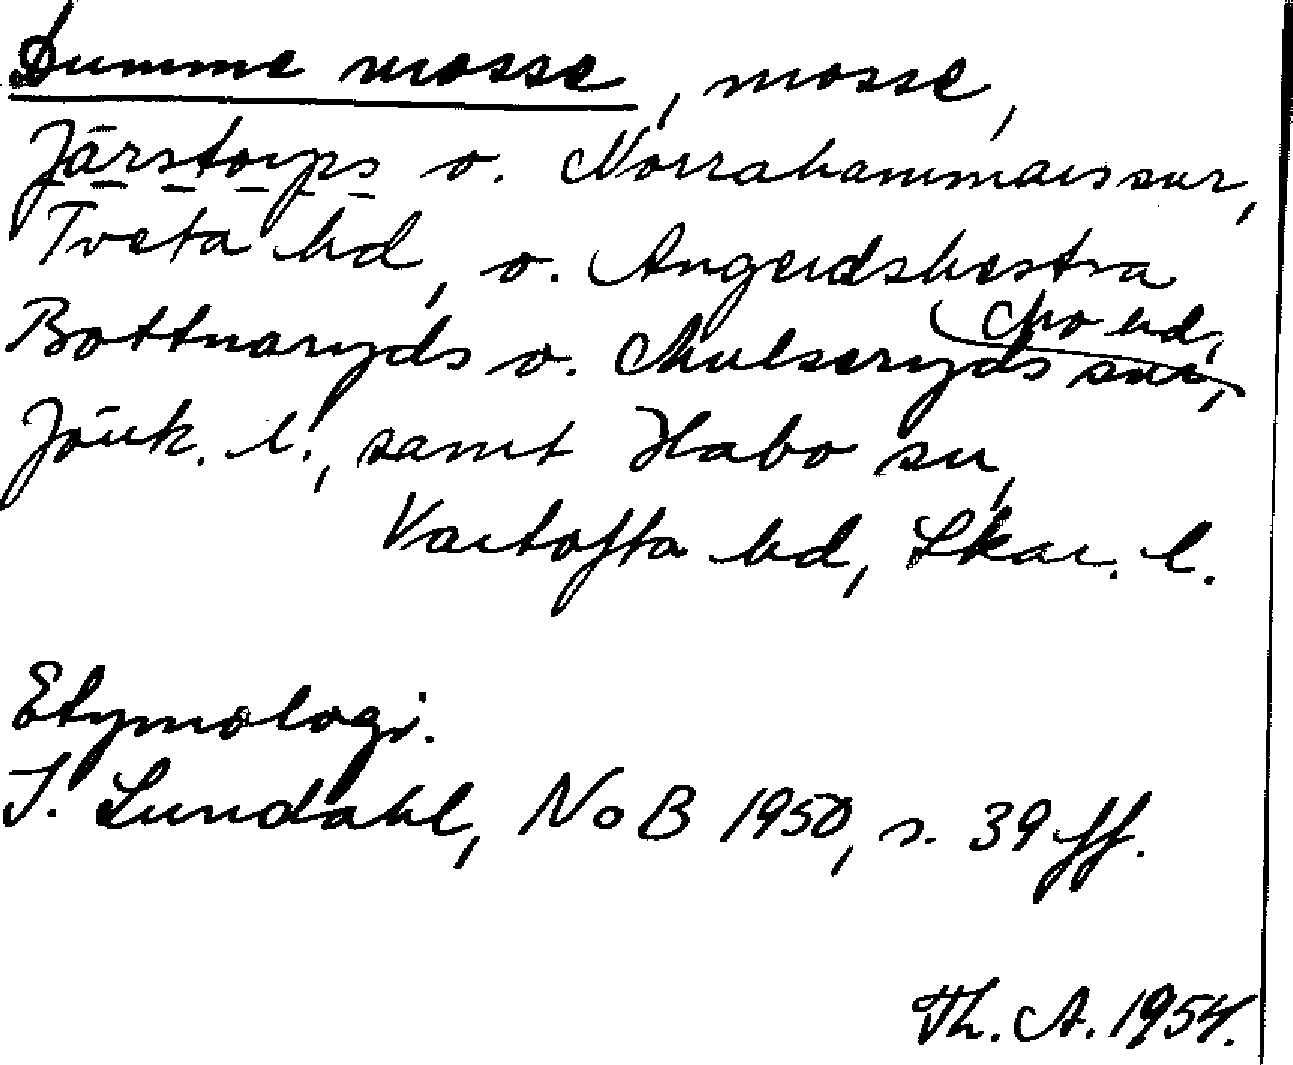 Dumme mosse, mosse,
Järstorps o. Norrahammars snr,
Tveta hd, o. Angerdshestra
Mo hd,
Bottnaryds o. Mulseryds snr,
Jönk. l., samt Habo sn,
Vartofta hd, Skar. l.
Etymologi.
I. Lundahl, NoB 1950, s. 39 ff.
Th. A. 1954.